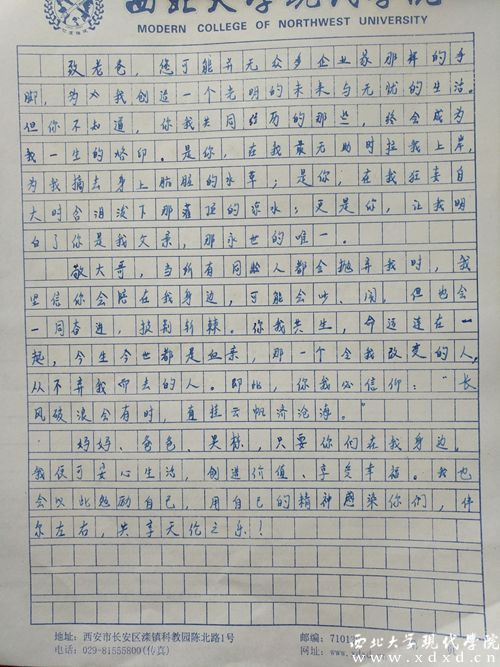 西北大学现代学院
MODERN COLLEGE OF NORTHWEST UNIVERSITY
致老爸，您可能并无众多企业家那样的手
脚，为我创造一个光明的未来与无忧的生活。
但你不知道，你我共同经历的那些，终会成为
我一生的烙印。是你，在我最无助时拉我上岸，
为我摘去身上肮脏的水草；是你，在我狂妄自
大时含泪泼下那落顶的凉水；更是你，让我明
白了你是我父亲，那永世的唯一。
敬大哥，当所有同龄人都会抛弃我时，我
坚信你会陪在我身边，可能会吵、闹，但也会
一同奋进，披荆斩棘。你我共生，命运连在一
起，今生今世都是血亲，那一个令我改变的人，
从不弃我而去的人。即此，你我必信仰：“长
风破浪会有时，直挂云帆济沧海。”
妈妈、爸爸、吴栋，只要你们在我身边，
我便可安心生活，创造价值、享受幸福。我也
会以此勉励自己，用自己的精神感染你们，伴
尔左右，共享天伦之乐！
地址：西安市长安区滦镇科教园陈北路1号
邮编：7101
电话：029-81555800(传真)
网址：www.
西北大学现代学院
www.xdxd.cn